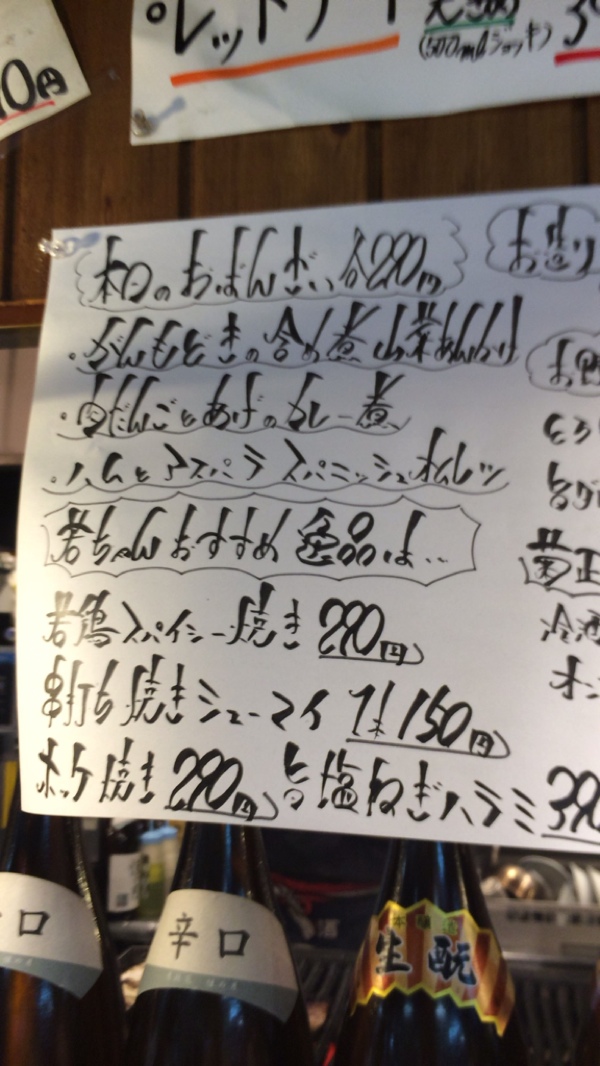 0円
レットサート
大きめ
(500mlジョッキ)
本日のおばんざい 各290円
お造り
・がんもどきの含め煮 山菜あんかけ
・肉だんごとあげのカレー煮
・ハムとアスパラ スパニッシュオムレツ
若ちゃんおすすめ逸品は・・
若鶏スパイシー焼き 290円
菊正
串打ち焼きシューマイ 1本150円
冷酒
ホッケ焼き 290円 旨塩ねぎハラミ 390
辛口
口
本醸造
生酛